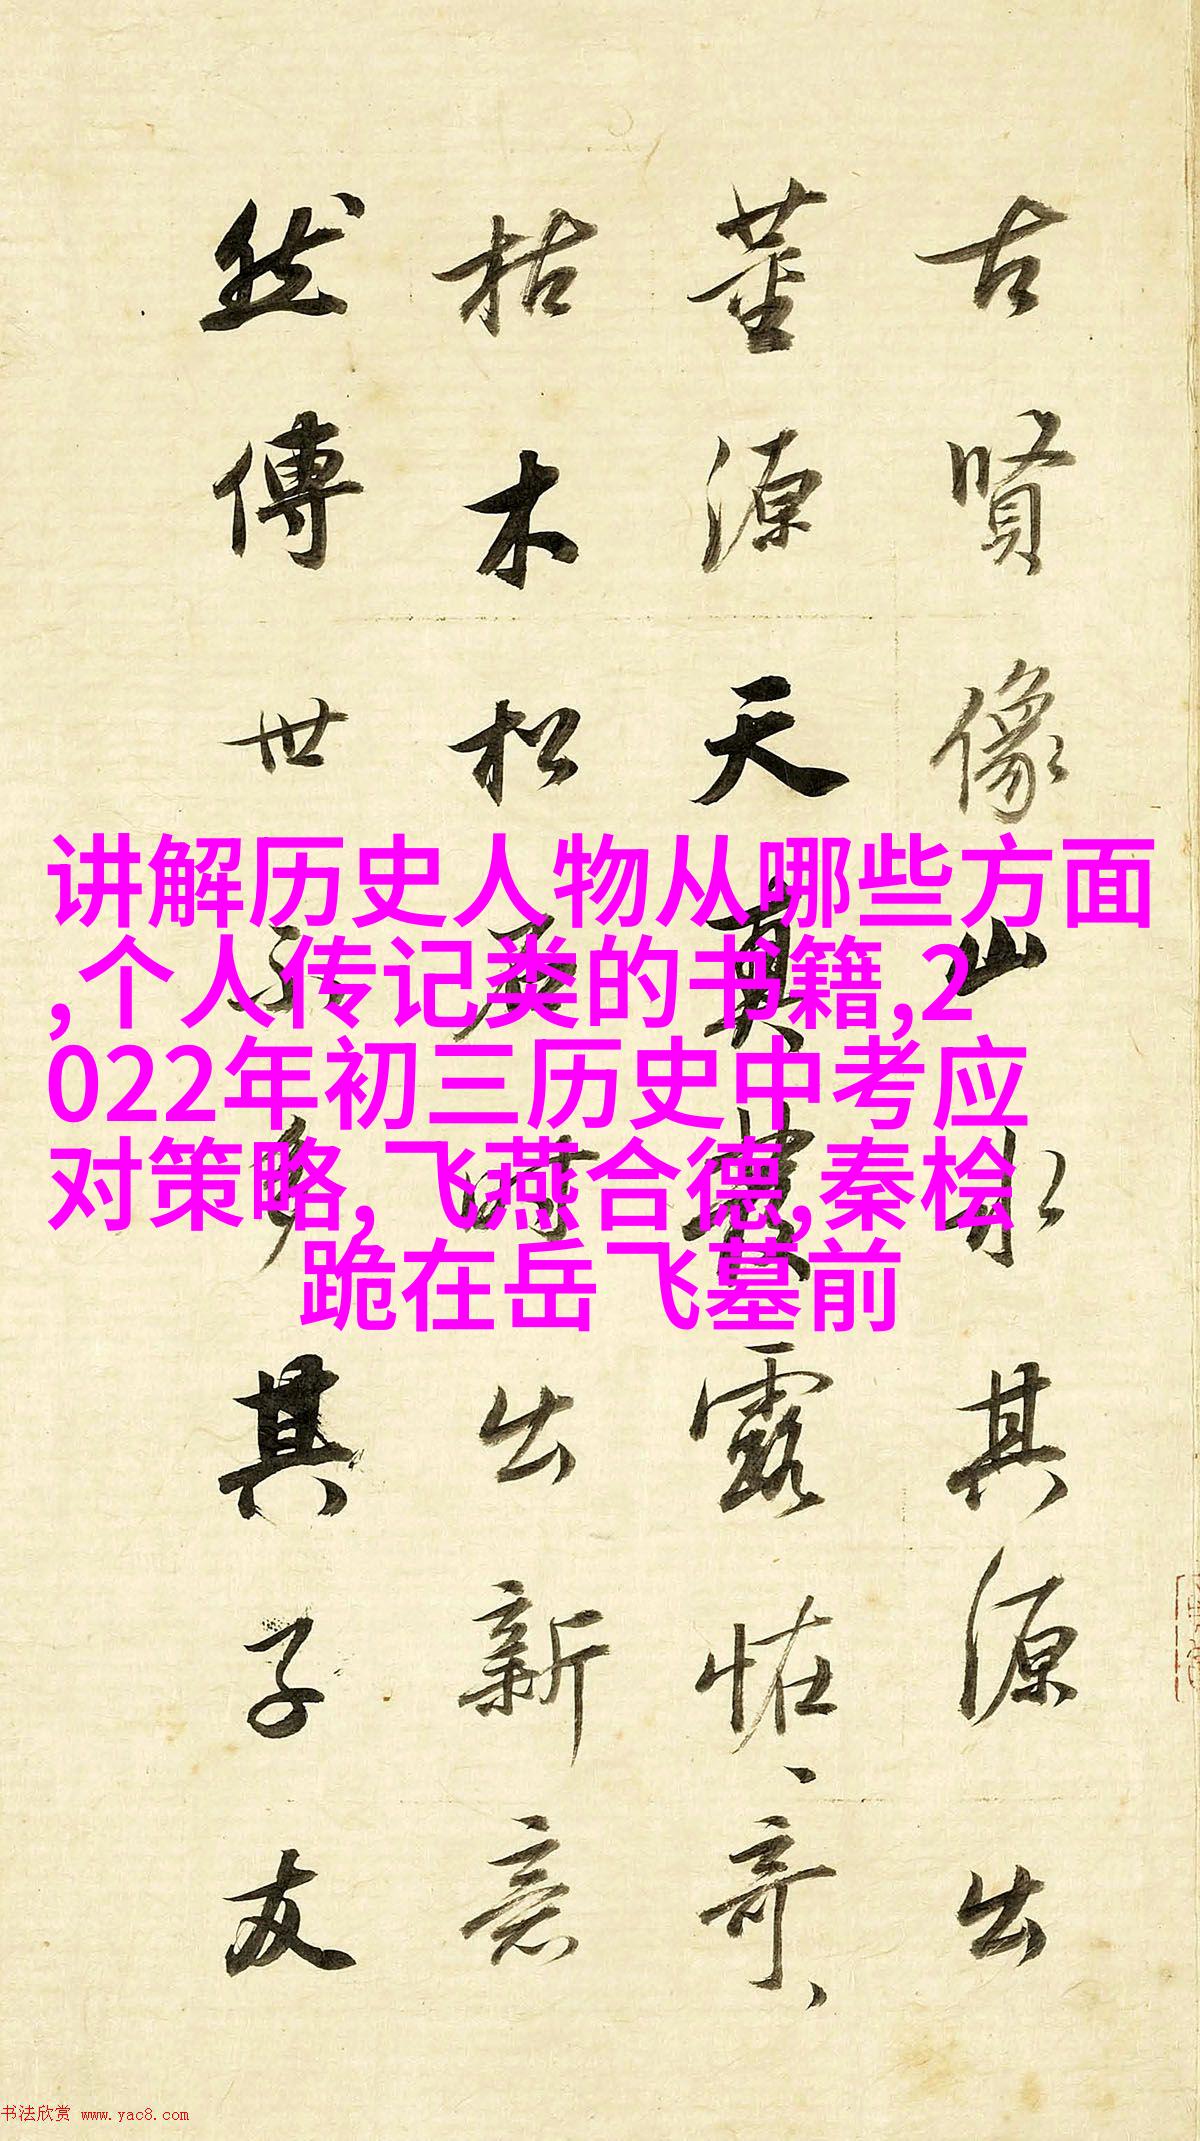 古賢像山水其源出
董源天真發露恠、奇、
枯木松石時出新意
然傳世不多其子友
讲解历史人物从哪些方面
,个人传记类的书籍,2
022年初三历史中考应
对策略,飞燕合德,秦桧
跪在岳飞墓前
书法欣赏 www.yac8.com